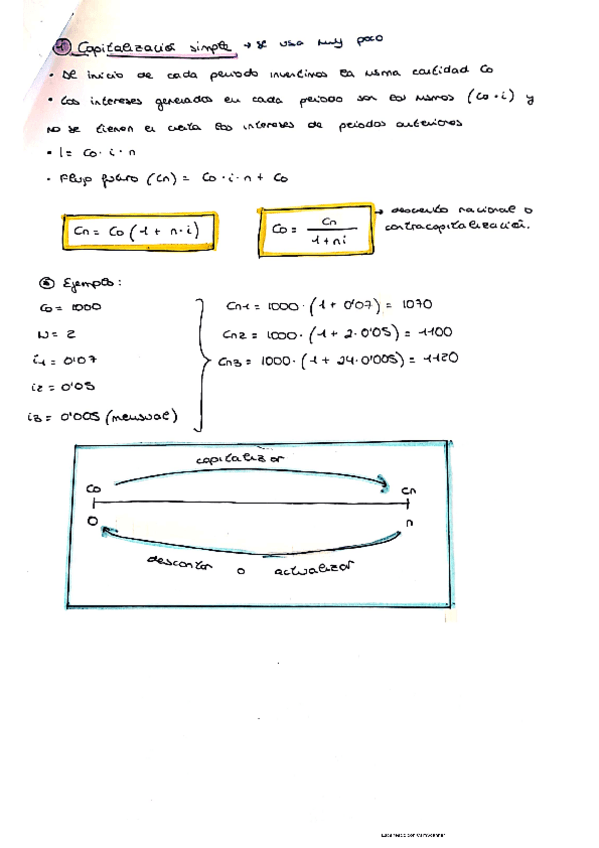 1 Capitalización simple → se usa muy poco
• Al inicio de cada periodo invertimos la misma cantidad Co
• Los intereses generados en cada periodo son los mismos (Co·i) y
no se tienen en cuenta los intereses de periodos anteriores
• I = Co · i · n
• Flujo futuro (Cn) = Co · i · n + Co
Cn = Co (1 + n · i)
Co = Cn / 1 + ni
→ descuento racional o
contracapitalización.
Ejemplo:
Co = 1000
N = 2
i1 = 0'07
i2 = 0'05
i3 = 0'005 (mensual)
Cn1 = 1000 · (1 + 0'07) = 1070
Cn2 = 1000 · (1 + 2 · 0'05) = 1100
Cn3 = 1000 · (1 + 24 · 0'005) = 1120
capitalizar
Co
Cn
0
n
descontar o actualizar